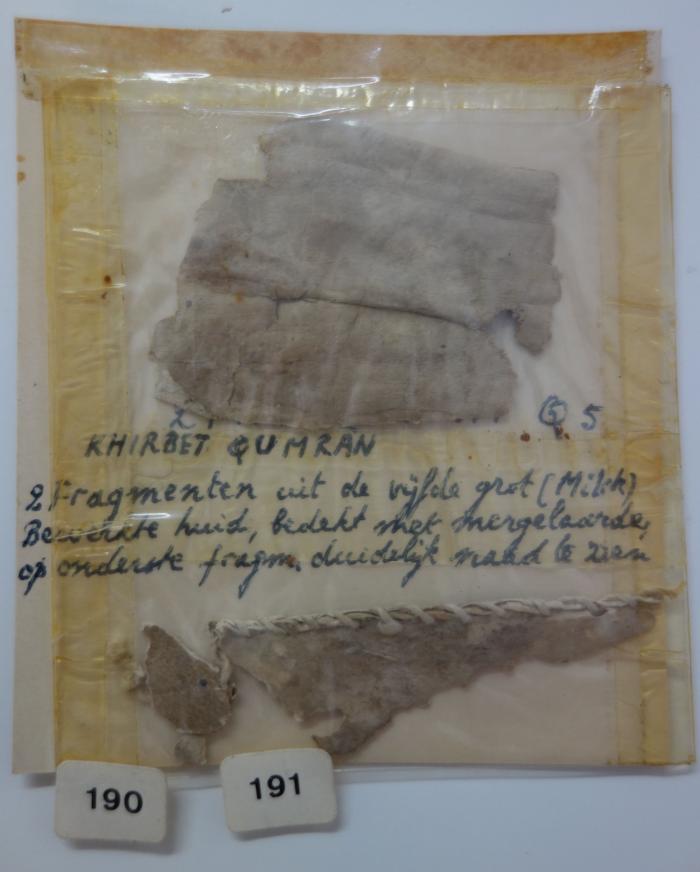 2
Q 5
KHIRBET QUMRÂN
2 Fragmenten uit de vijfde grot (Milik)
Bewerkte huid, bedekt met mergelaarde,
op onderste fragm. duidelijk naad te zien
190
191